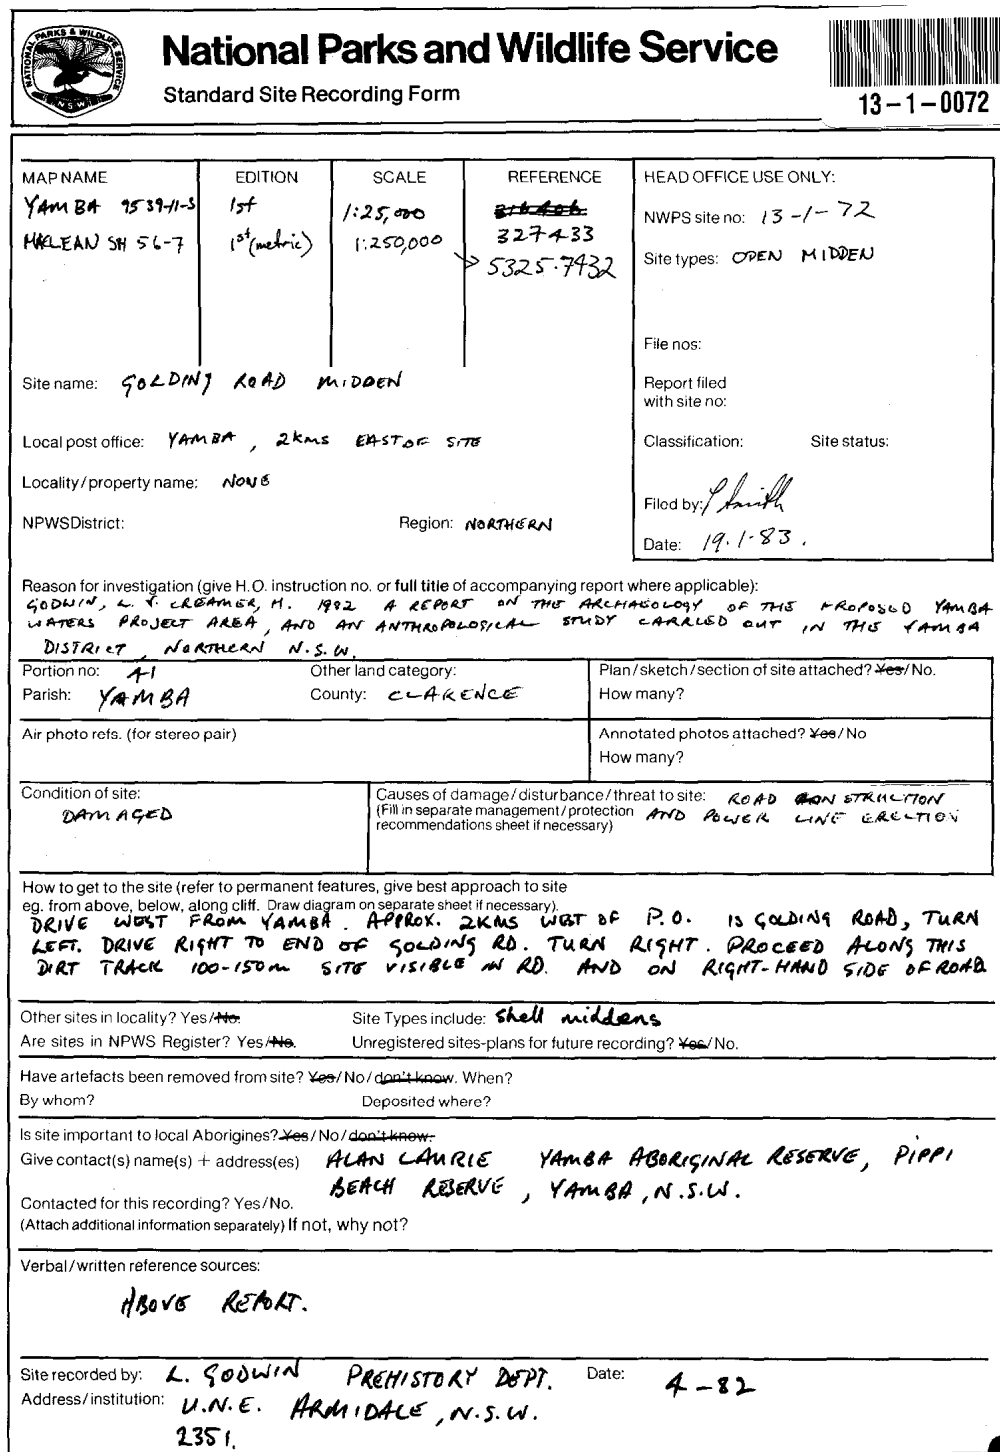 NATIONAL PARKS & WILDLIFE SERVICE
N.S.W.
National Parks and Wildlife Service
Standard Site Recording Form
13-1-0072
MAP NAME EDITION SCALE REFERENCE
YAMBA 9539-11-S 1st 1:25,000
MACLEAN SH 56-7 1st (metric) 1:250,000 327433
5325.7432
HEAD OFFICE USE ONLY:
NWPS site no: 13-1-72
Site types: OPEN MIDDEN
File nos:
Report filed
with site no:
Classification: Site status:
Filed by: Smith
Date: 19.1.83.
Site name: GOLDING ROAD MIDDEN
Local post office: YAMBA, 2kms EAST OF SITE
Locality/property name: NONE
NPWS District: Region: NORTHERN
Reason for investigation (give H.O. instruction no. or full title of accompanying report where applicable):
GODWIN, L. & CREAMER, H. 1982 A REPORT ON THE ARCHAEOLOGY OF THE PROPOSED YAMBA
WATERS PROJECT AREA, AND AN ANTHROPOLOGICAL STUDY CARRIED OUT IN THE YAMBA
DISTRICT, NORTHERN N.S.W.
Portion no: 41 Other land category:
Parish: YAMBA County: CLARENCE
Plan/sketch/section of site attached? Yes/No.
How many?
Air photo refs. (for stereo pair)
Annotated photos attached? Yes/No
How many?
Condition of site:
DAMAGED
Causes of damage/disturbance/threat to site: ROAD CONSTRUCTION
(Fill in separate management/protection AND POWER LINE ERECTION
recommendations sheet if necessary)
How to get to the site (refer to permanent features, give best approach to site
eg. from above, below, along cliff. Draw diagram on separate sheet if necessary).
DRIVE WEST FROM YAMBA. APPROX. 2KMS WEST OF P.O. IS GOLDING ROAD, TURN
LEFT. DRIVE RIGHT TO END OF GOLDING RD. TURN RIGHT. PROCEED ALONG THIS
DIRT TRACK 100-150m SITE VISIBLE IN RD. AND ON RIGHT-HAND SIDE OF ROAD
Other sites in locality? Yes/No. Site Types include: Shell middens
Are sites in NPWS Register? Yes/No. Unregistered sites-plans for future recording? Yes/No.
Have artefacts been removed from site? Yes/No/don't know. When?
By whom? Deposited where?
Is site important to local Aborigines? Yes/No/don't know.
Give contact(s) name(s) + address(es) ALAN LAURIE YAMBA ABORIGINAL RESERVE, PIPPI
BEACH RESERVE, YAMBA, N.S.W.
Contacted for this recording? Yes/No.
(Attach additional information separately) If not, why not?
Verbal/written reference sources:
ABOVE REPORT.
Site recorded by: L. GODWIN PREHISTORY DEPT. Date: 4-82
Address/institution: U.N.E. ARMIDALE, N.S.W.
2351.